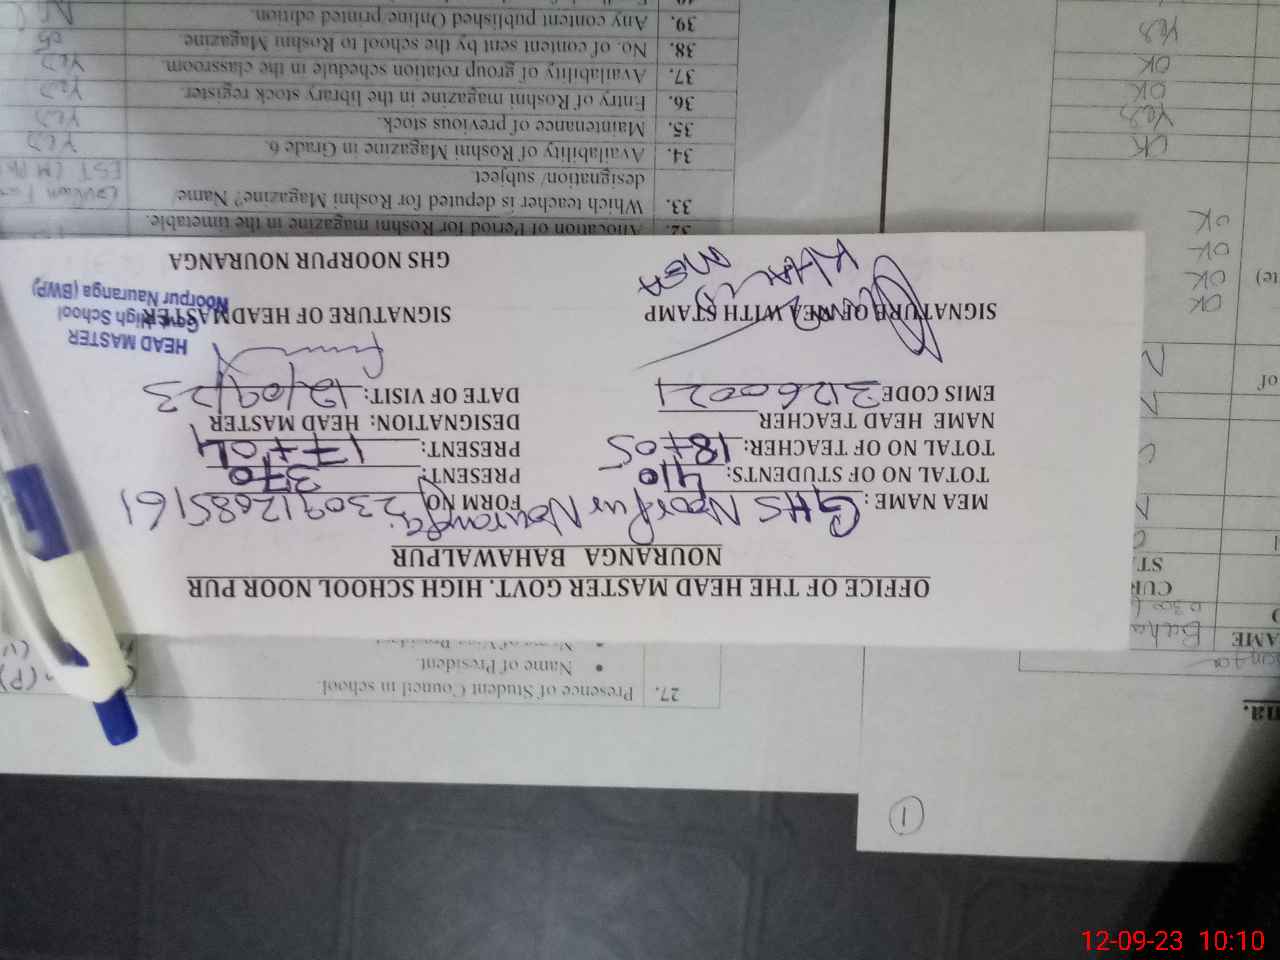 OFFICE OF THE HEAD MASTER GOVT. HIGH SCHOOL NOOR PUR
NOURANGA BAHAWALPUR
MEA NAME: GHS NoorPur Nouranga FORM NO. 230912685161
TOTAL NO OF STUDENTS: 410 PRESENT: 370
TOTAL NO OF TEACHER: 18+05 PRESENT: 17+04
NAME HEAD TEACHER DESIGNATION: HEAD MASTER
EMIS CODE 31260021 DATE OF VISIT: 12/09/23
SIGNATURE OF MEA WITH STAMP SIGNATURE OF HEAD MASTER
MEA
GHS NOORPUR NOURANGA
HEAD MASTER
Govt. High School
Noorpur Nauranga (BWP)
27. Presence of Student Council in school
• Name of President
32. Allocation of Period for Roshni magazine in the timetable.
33. Which teacher is deputed for Roshni Magazine? Name/
designation/ subject
EST
34. Availability of Roshni Magazine in Grade 6. Yes
35. Maintenance of previous stock. Yes
36. Entry of Roshni magazine in the library stock register. Yes
37. Availability of group rotation schedule in the classroom Yes
38. No. of content sent by the school to Roshni Magazine. 05
39. Any content published Online/printed edition.
1
AME Baha
CUR
ST.
N
N
of N
OK
te) OK
OK
OK
OK
Yes
OK
OK
Yes
12-09-23 10:10